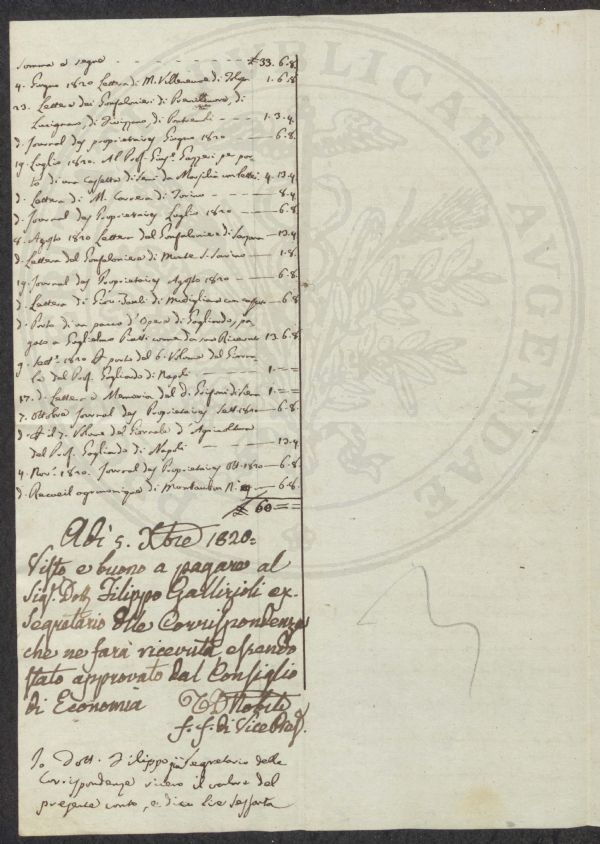 Somma e segue - - - - - - - £ 33. 6. 8.
4. Giugno 1820 Lettera di M. Villeneuve di 1. 6. 8
23. Lettere dei Gonfalonieri di di
Lucignano, di di - - - 1. 3. 4.
d. Journal des proprietaires Giugno 1820 - - 6. 8.
19. Luglio 1820. Al Prof. Gazzeri per por-
to di una cassetta di da Marsilia con lettera 4. 13. 4
d. Lettera di M. di Torino - - - 8. 4
d. Journal des Proprietaires Luglio 1820 - - 6. 8
8. Agosto 1820 Lettera del Gonfaloniere di - 13. 4
d. Lettera del Gonfaloniere di Monte S. Savino - 1. 8.
19. Journal des Proprietaires Agosto 1820 - - 6. 8
d. Lettera di di Modigliana con - 6. 8
d. Porto di un pacco d'Opere di Gagliardo, pa-
gato a Guglielmo Piatti come da sua Ricevuta 13. 6. 8
9. Sett.e 1820 porto del 6. Volume del Giorna-
le del Prof. Gagliardo di Napoli - - 1. = =
17. d. Lettera e Memoria del d. di Siena 1. = =
7. Ottobre Journal des Proprietaires Sett. 1820 - 6. 8.
d. il 7. Volume del Giornale d'Agricoltura
del Prof. Gagliardo di Napoli - - - 13. 4
4. Nov.e 1820. Journal des Proprietaires Ott. 1820 - 6. 8
d. Recueil agronomique di Montauban N. 9 - 6. 8.
£ 60 = =
Adì 5. Xbre 1820 =
Visto e buono a pagare al
Sig.r Dott. Filippo Gallizioli ex-
Segretario delle Corrispondenze
che ne farà ricevuta essendo
stato approvato dal Consiglio
di Economia Nobili
f. f. di Vice Pres.
Io Dott. Filippo già Segretario delle
Corrispondenze ricevo il valore del
presente conto, e dico lire sessanta
PUBLICAE AGENDAE